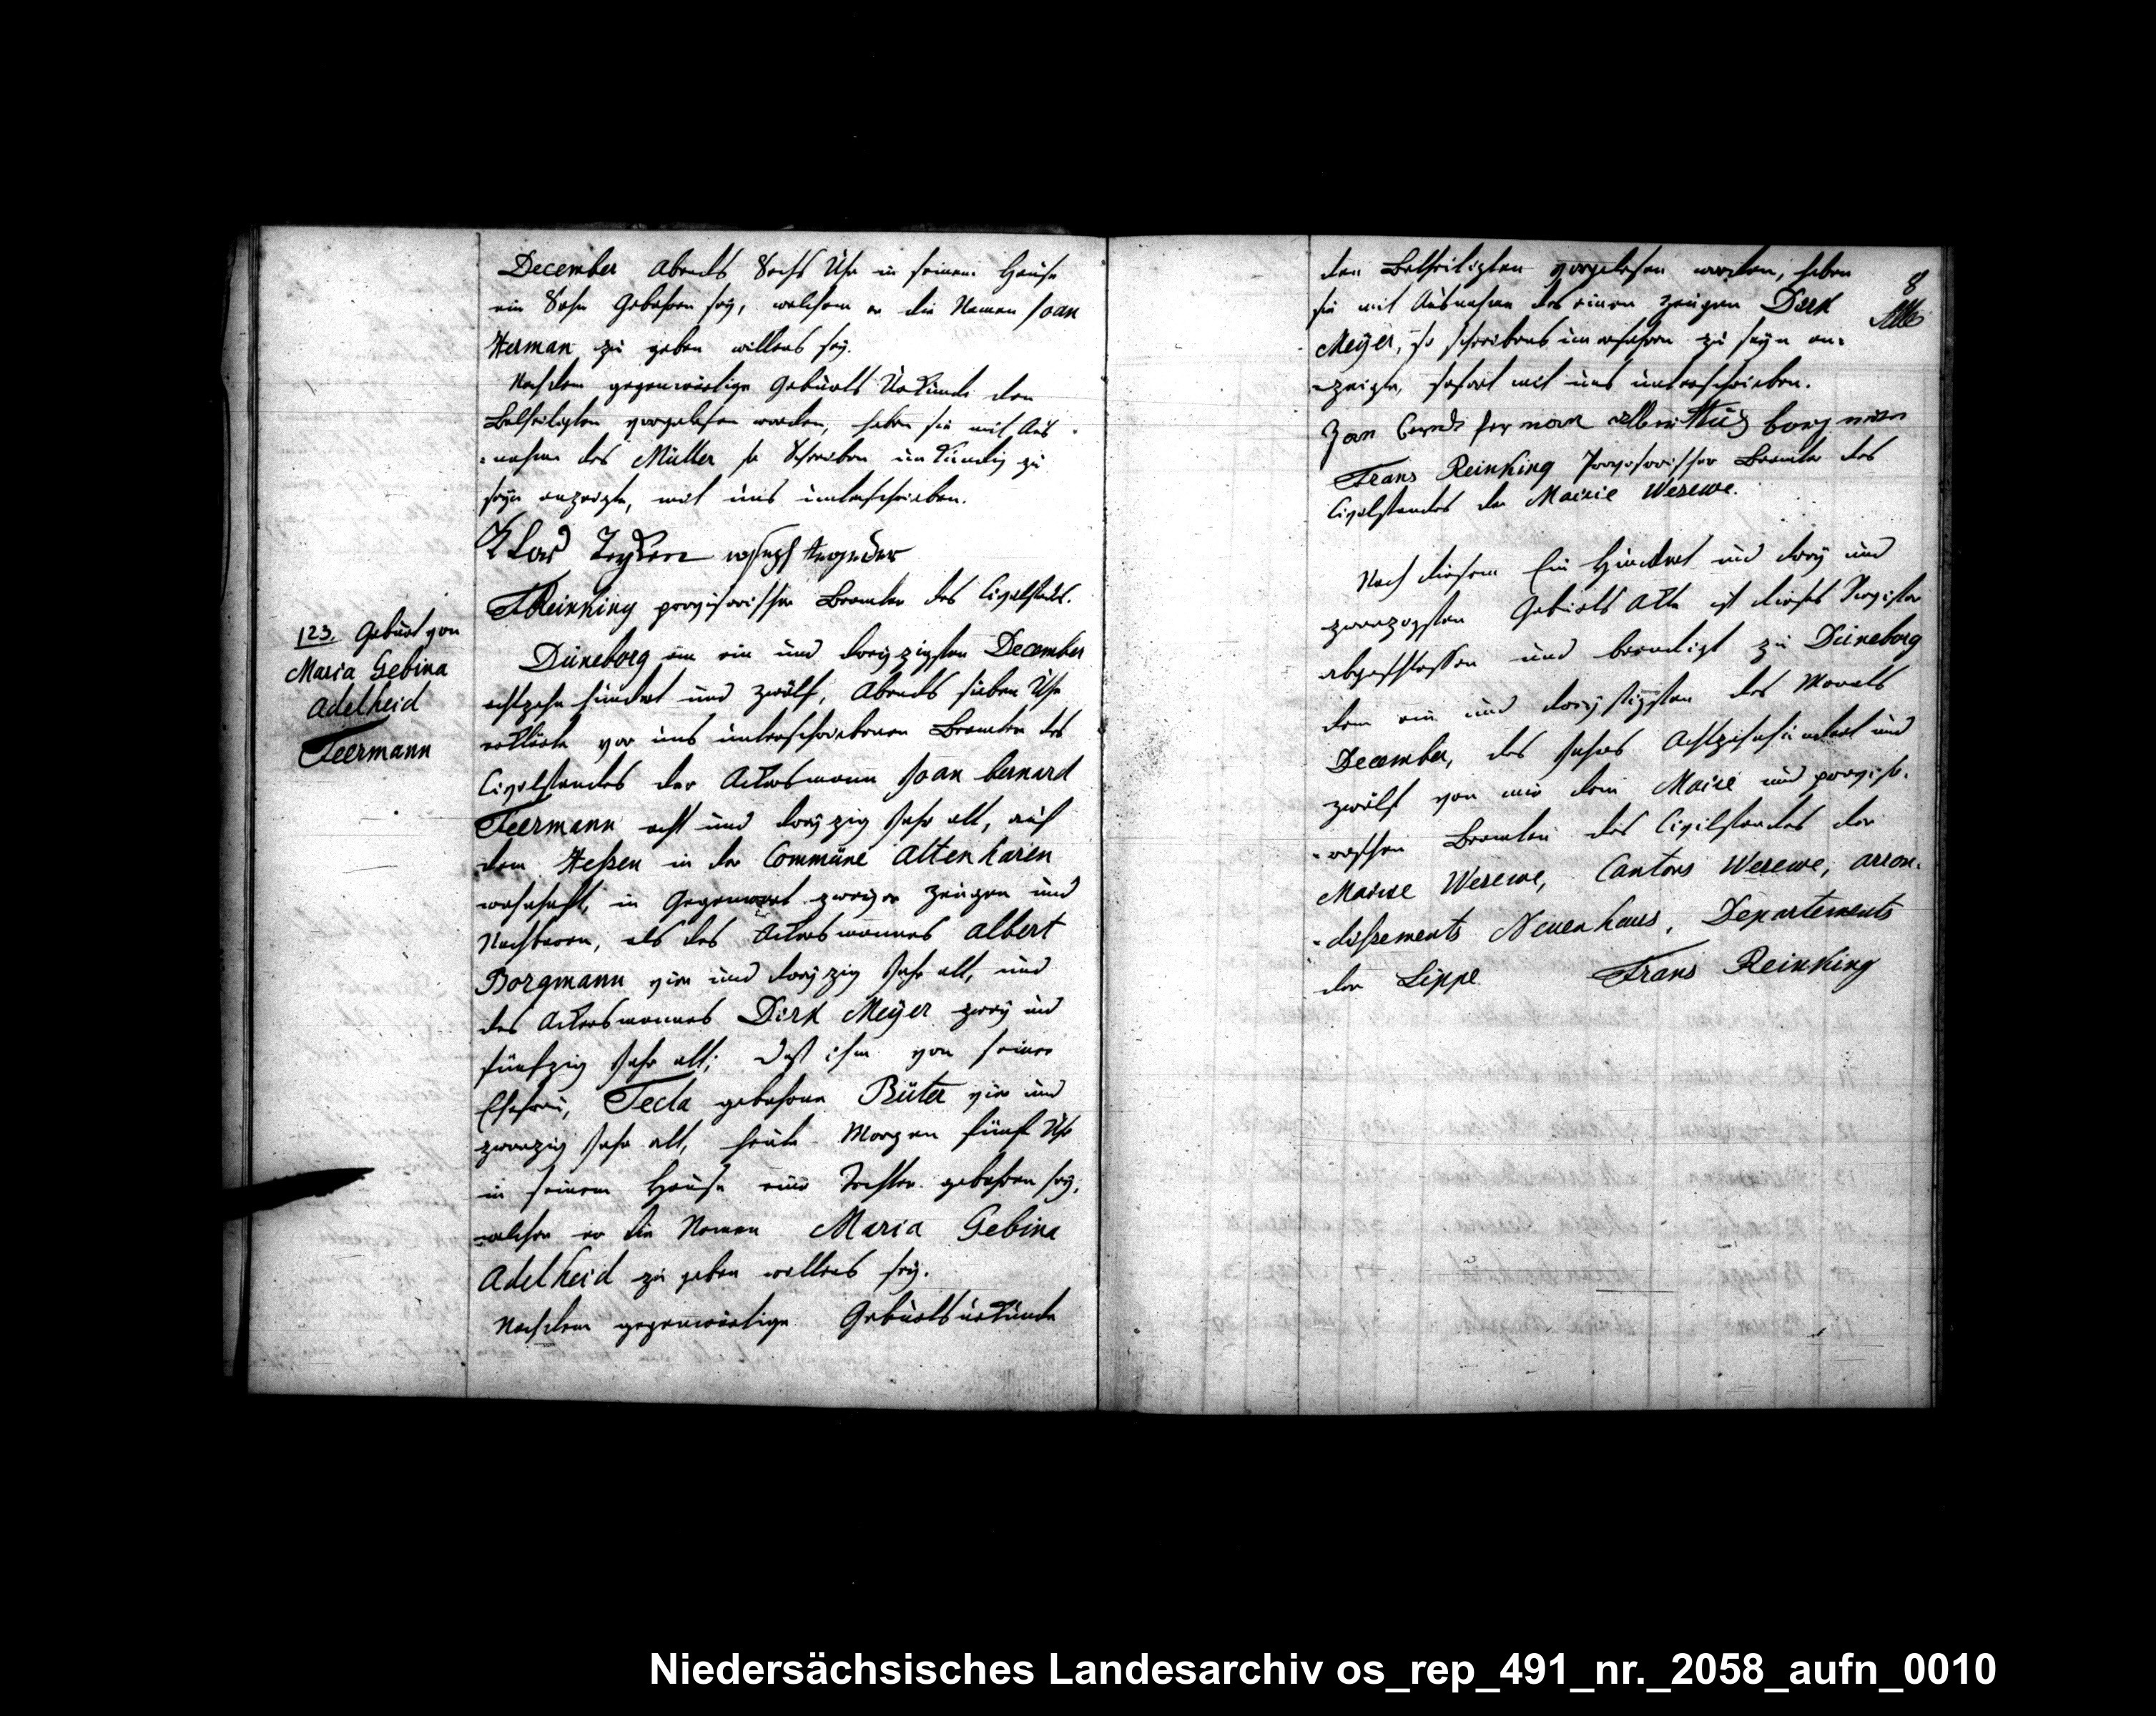 December Abends Sechs Uhr in seinem Hause
ein Sohn gebohren sey, welchem er die Namen Joan
Herman zu geben willens sey.
Nachdem gegenwärtige Geburts Urkunde den
Betheiligten vorgelesen worden, haben sie mit Aus
=nahme des Müller so Schreiben unkundig zu
seyn anzeigte, mit uns unterschrieben.
Joseph
FReinking provisorischer Beamter des Civilstandes.
123. Geburt von
Maria Gebina
Adelheid
Teermann
Düneborg am ein und dreyzigsten December
achtzehn hundert und zwölf, Abends sieben Uhr
erklärte vor uns unterschriebenen Beamten des
Civilstandes der Ackersmann Joan bernard
Teermann acht und dreyzig Jahr alt, auf
dem Heßen in der Commüne Altenharen
wohnhaft, in Gegenwart zweyer Zeugen und
Nachbaren, als des Ackersmannes Albert
Borgmann vier und dreyzig Jahr alt, und
des Ackersmannes Dirk Meyer zwey und
fünfzig Jahr alt; daß ihm von seiner
Ehefrau, Tecla gebohrne Büter vier und
zwanzig Jahr alt, heute Morgen fünf Uhr
in seinem Hause eine Tochter gebohren sey,
welcher er die Namen Maria Gebina
Adelheid zu geben willens sey.
Nachdem gegenwärtige Geburtsurkunde
8
den Betheiligten vorgelesen worden, haben
sie mit Ausnahme des einen Zeugen Dirk
Meyer, so schreibens unerfahren zu seyn an=
=zeigte, sofort mit uns unterschrieben.
Jan Bernd borgman
Frans Reinking Provisorischer Beamter des
Civilstandes der Mairie Wesewe.
Nach diesem Ein Hundert und drey und
zwanzigsten Geburts Akte ist dieses Register
abgeschlossen und beendigt zu Düneborg
dem ein und dreyßigsten des Monats
December, des Jahres Achtzehnhundert und
zwölf von mir dem Maire und proviso=
=rischen Beamten des Civilstandes der
Mairie Wesewe, Cantons Wesewe, arron=
=dißements Neuenhaus, Departements
der Lippe. Frans Reinking
Niedersächsisches Landesarchiv os_rep_491_nr._2058_aufn_0010